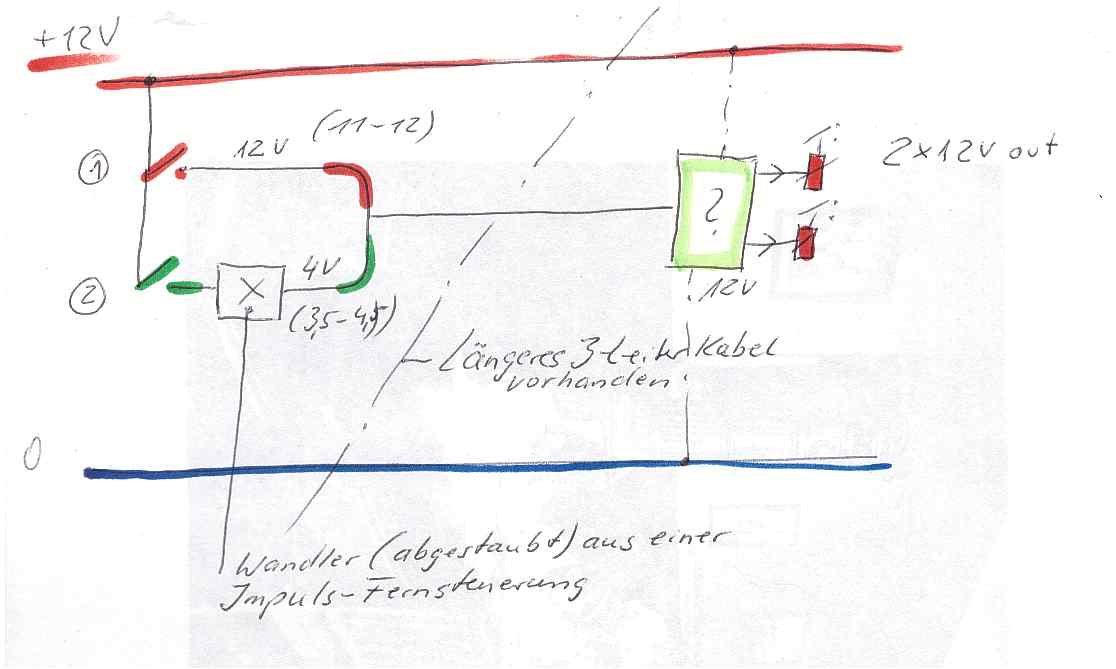 +12V
12V (11-12)
①
2x12V out
?
②
X
4V
(3,5-4,5)
12V
Längeres 3-Leiter Kabel
vorhanden
0
Wandler (abgestaubt) aus einer
Impuls-Fernsteuerung